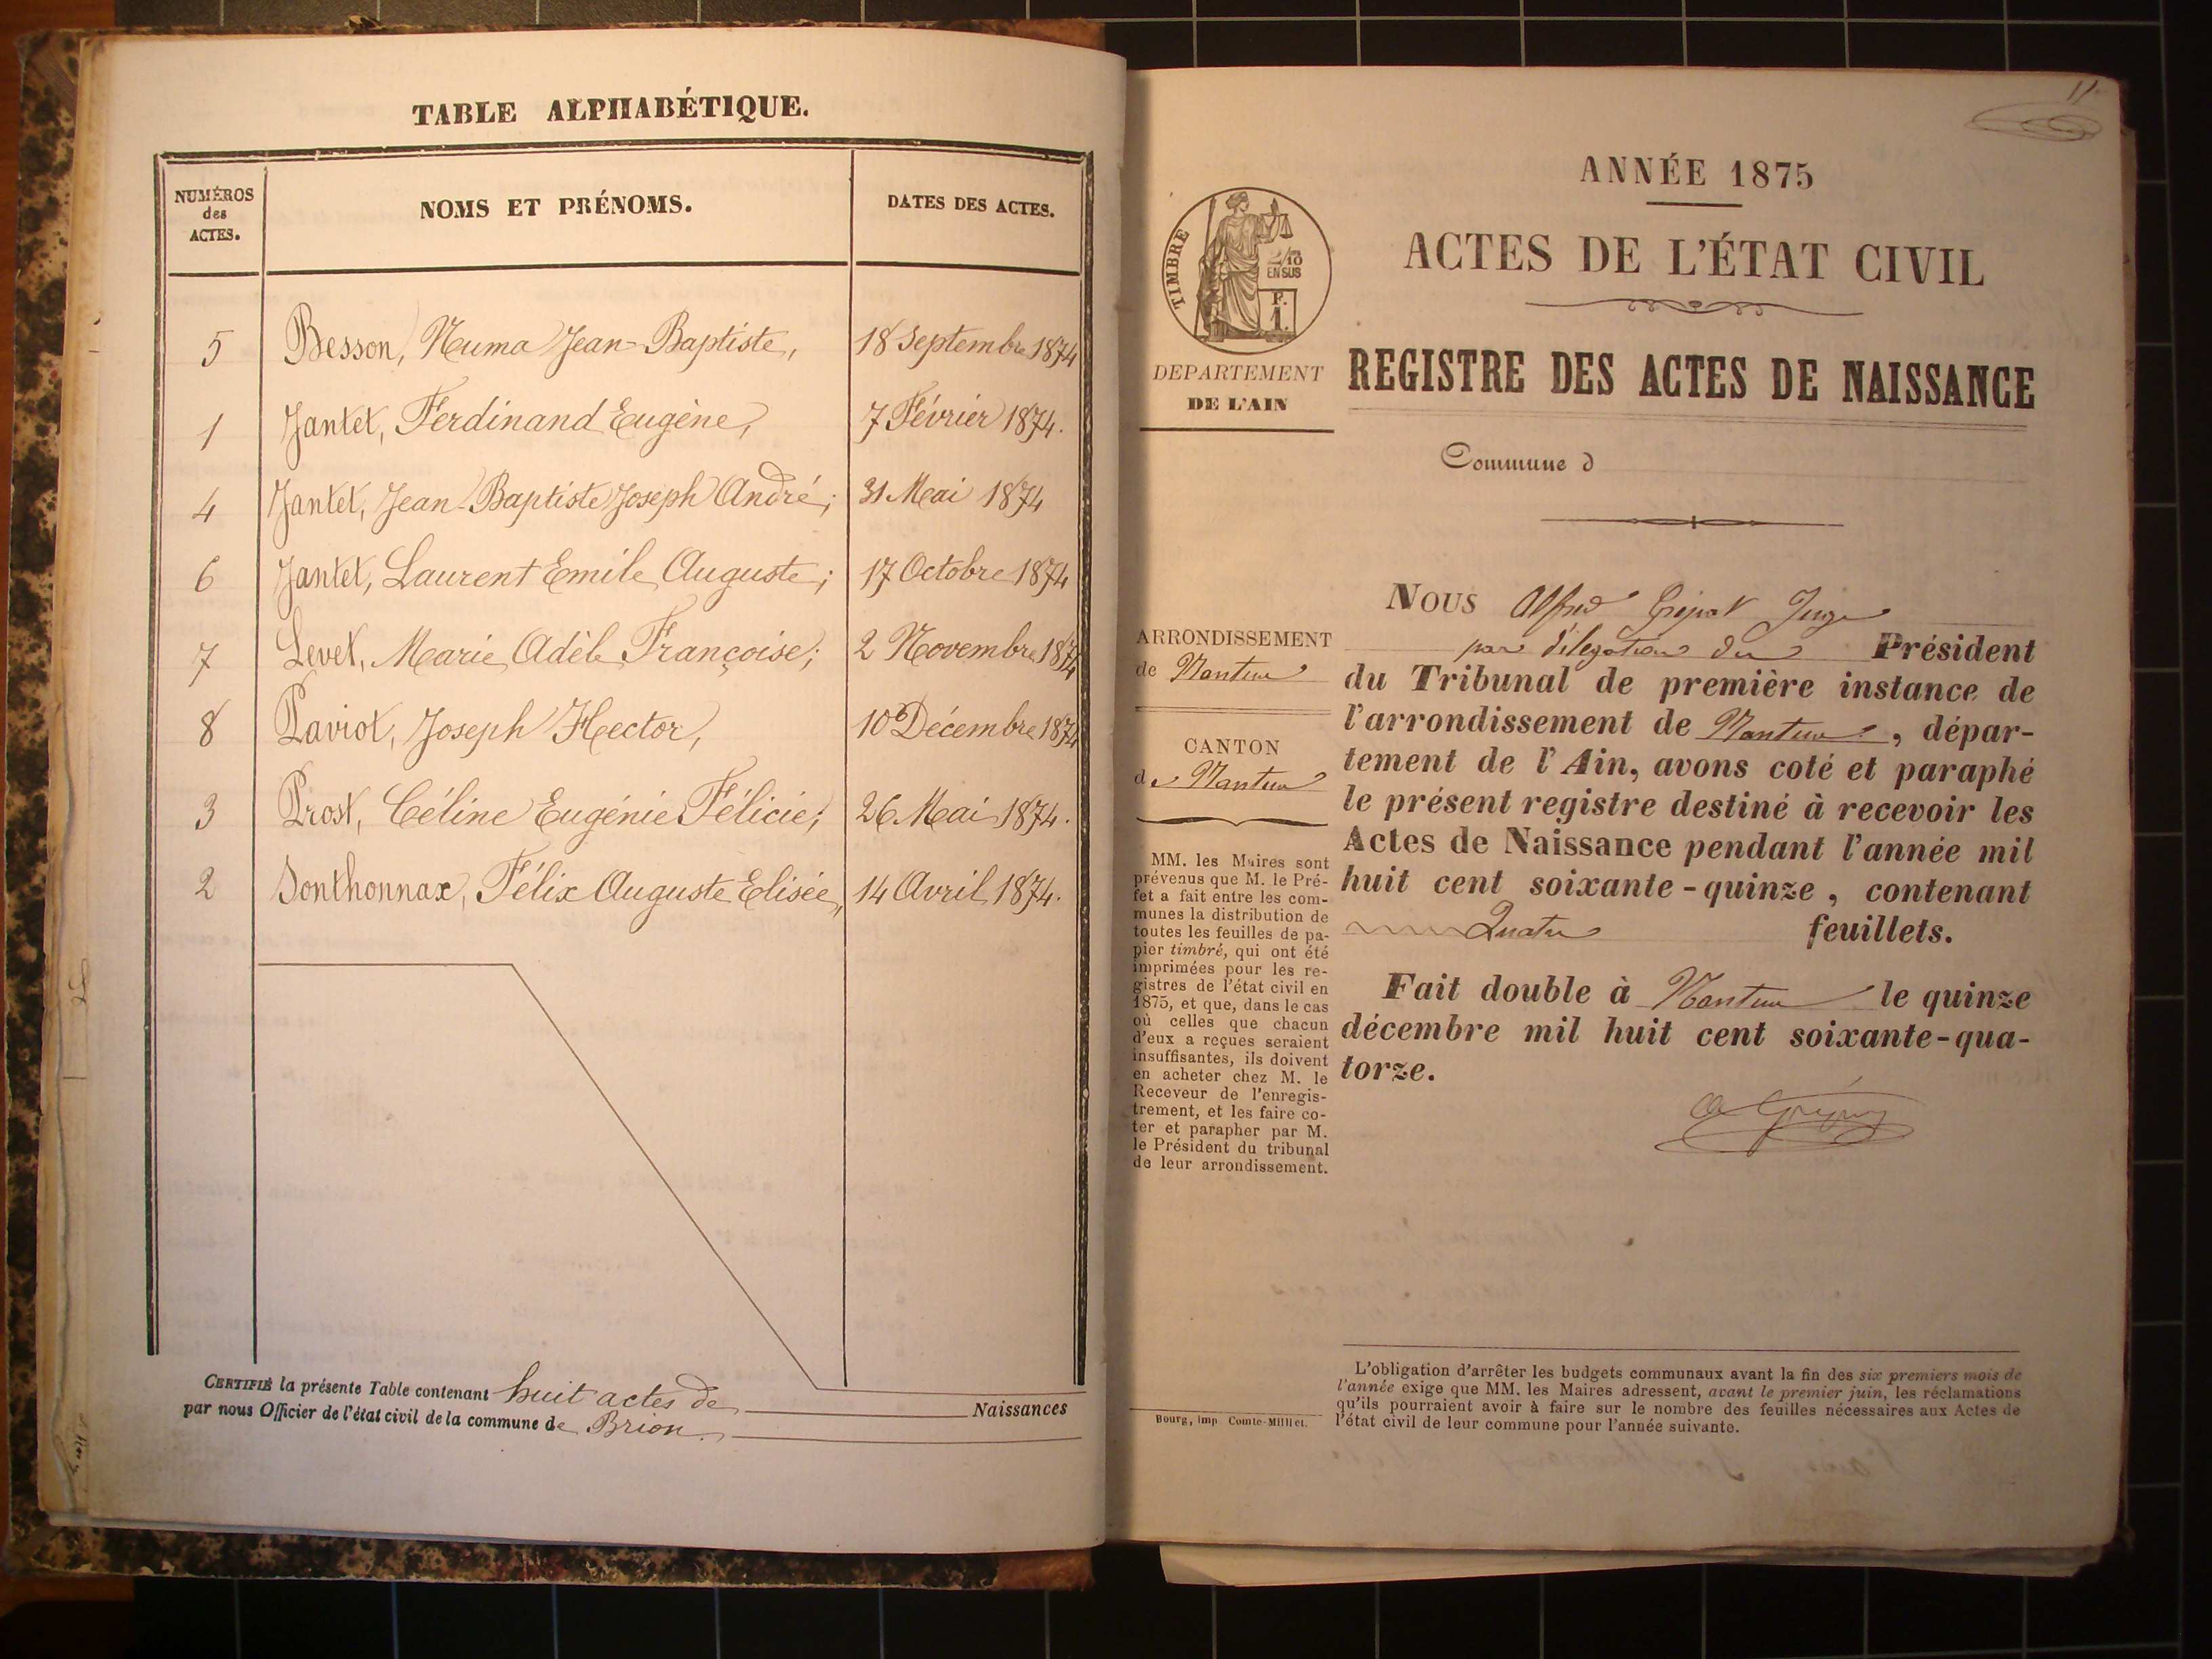 TABLE ALPHABÉTIQUE.
NUMÉROS
des
ACTES.
NOMS ET PRÉNOMS.
DATES DES ACTES.
5 Besson, Numa Jean-Baptiste, 18 Septembre 1874
1 Jantet, Ferdinand Eugène, 7 Février 1874.
4 Jantet, Jean-Baptiste Joseph André; 31 Mai 1874
6 Jantet, Laurent Emile Auguste; 17 Octobre 1874
7 Levet, Marie Adèle Françoise; 2 Novembre 1874
8 Paviot, Joseph Hector, 10 Décembre 1874
3 Prost, Céline Eugénie Félicie; 26 Mai 1874.
2 Sonthonnax, Félix Auguste Elisée, 14 Avril 1874.
CERTIFIÉ la présente Table contenant huit actes de Naissances
par nous Officier de l'état civil de la commune de Brion.
11
ANNÉE 1875
ACTES DE L'ÉTAT CIVIL
REGISTRE DES ACTES DE NAISSANCE
TIMBRE
2/10
EN SUS
F.
1.
DEPARTEMENT
DE L'AIN
Commune d
ARRONDISSEMENT
de Nantua
CANTON
de Nantua
MM. les Maires sont
prévenus que M. le Pré-
fet a fait entre les com-
munes la distribution de
toutes les feuilles de pa-
pier timbré, qui ont été
imprimées pour les re-
gistres de l'état civil en
1875, et que, dans le cas
où celles que chacun
d'eux a reçues seraient
insuffisantes, ils doivent
en acheter chez M. le
Receveur de l'enregis-
trement, et les faire co-
ter et parapher par M.
le Président du tribunal
de leur arrondissement.
NOUS Alfred Juge
par délégation du Président
du Tribunal de première instance de
l'arrondissement de Nantua, dépar-
tement de l'Ain, avons coté et paraphé
le présent registre destiné à recevoir les
Actes de Naissance pendant l'année mil
huit cent soixante-quinze, contenant
Quatre feuillets.
Fait double à Nantua le quinze
décembre mil huit cent soixante-qua-
torze.
L'obligation d'arrêter les budgets communaux avant la fin des six premiers mois de
l'année exige que MM. les Maires adressent, avant le premier juin, les réclamations
qu'ils pourraient avoir à faire sur le nombre des feuilles nécessaires aux Actes de
l'état civil de leur commune pour l'année suivante.
Bourg, imp. Comte-Milliet.